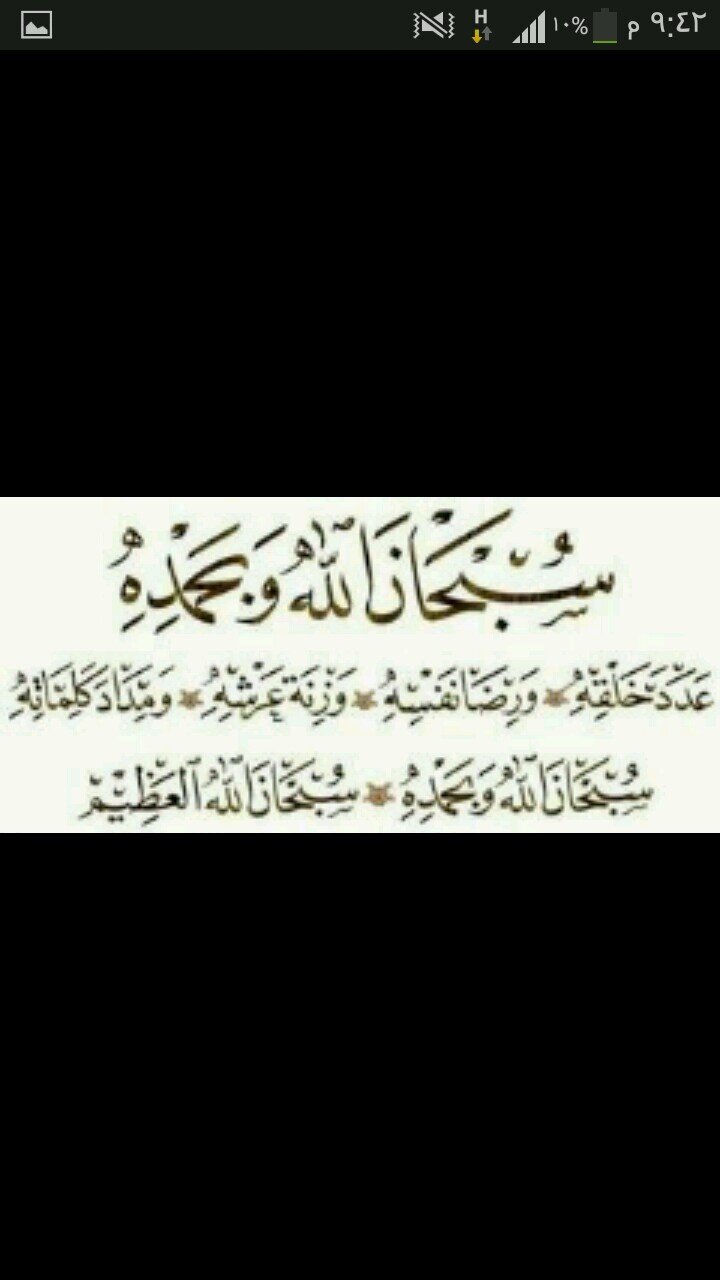 ١٠% م ٩:٤٢
H
سُبْحَانَ اللّٰهِ وَبِحَمْدِهِ
عَدَدَ خَلْقِهِ وَرِضَا نَفْسِهِ وَزِنَةَ عَرْشِهِ وَمِدَادَ كَلِمَاتِهِ
سُبْحَانَ اللّٰهِ وَبِحَمْدِهِ سُبْحَانَ اللّٰهِ الْعَظِيْمِ